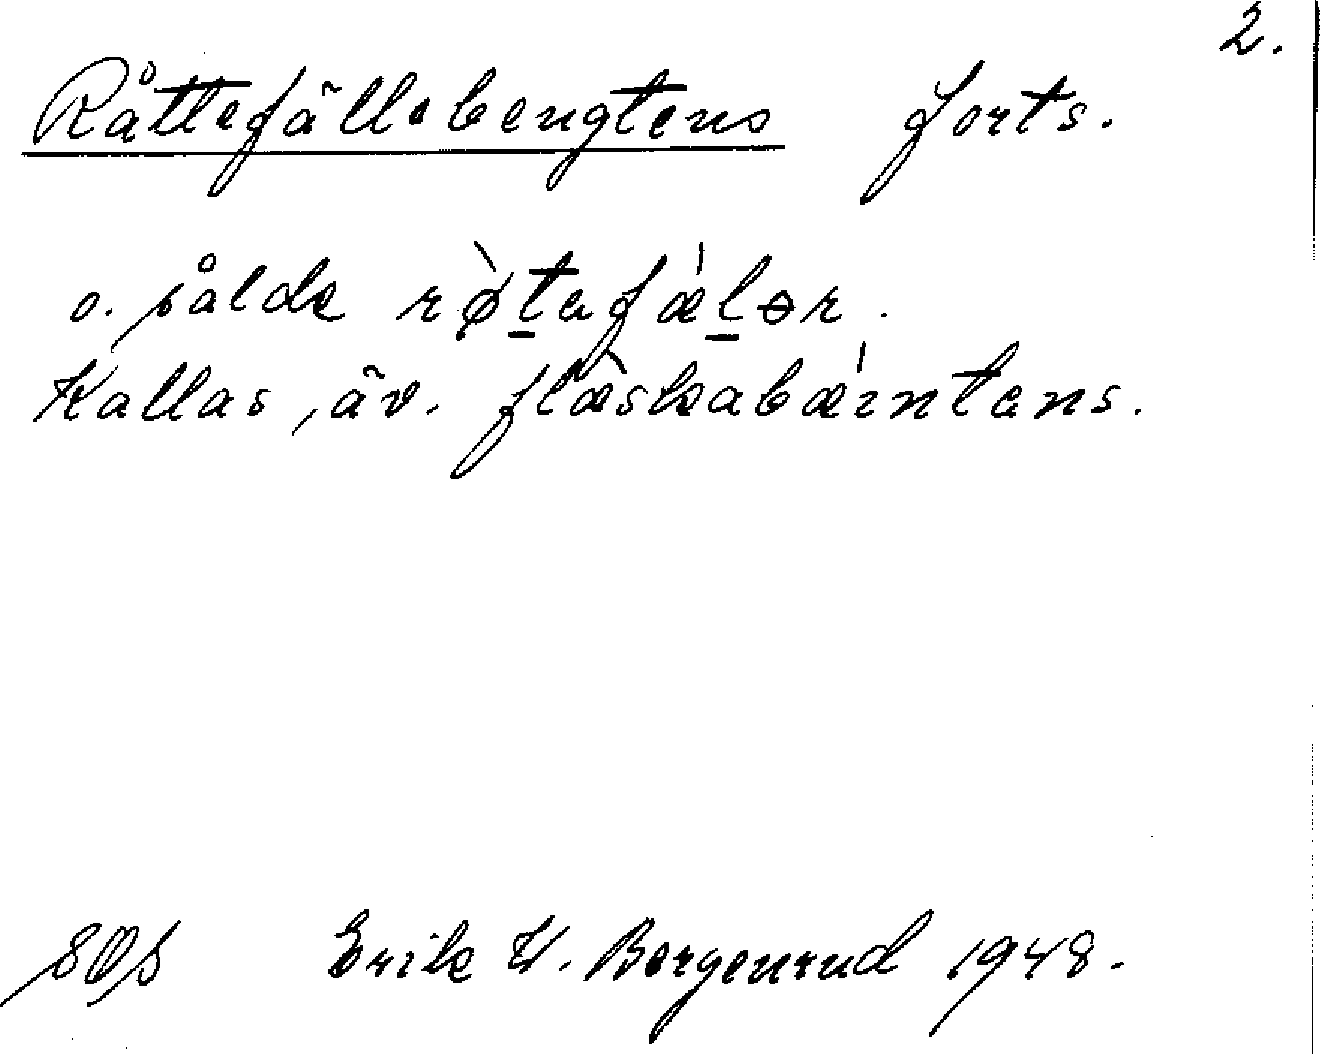 2.
Råttefällebengtens forts.
o. sålde rø̀tafæ̀lɵr.
Kallas äv. flæ̀skabæ̀ɪntens.
Erik W. Bergenrud 1948.